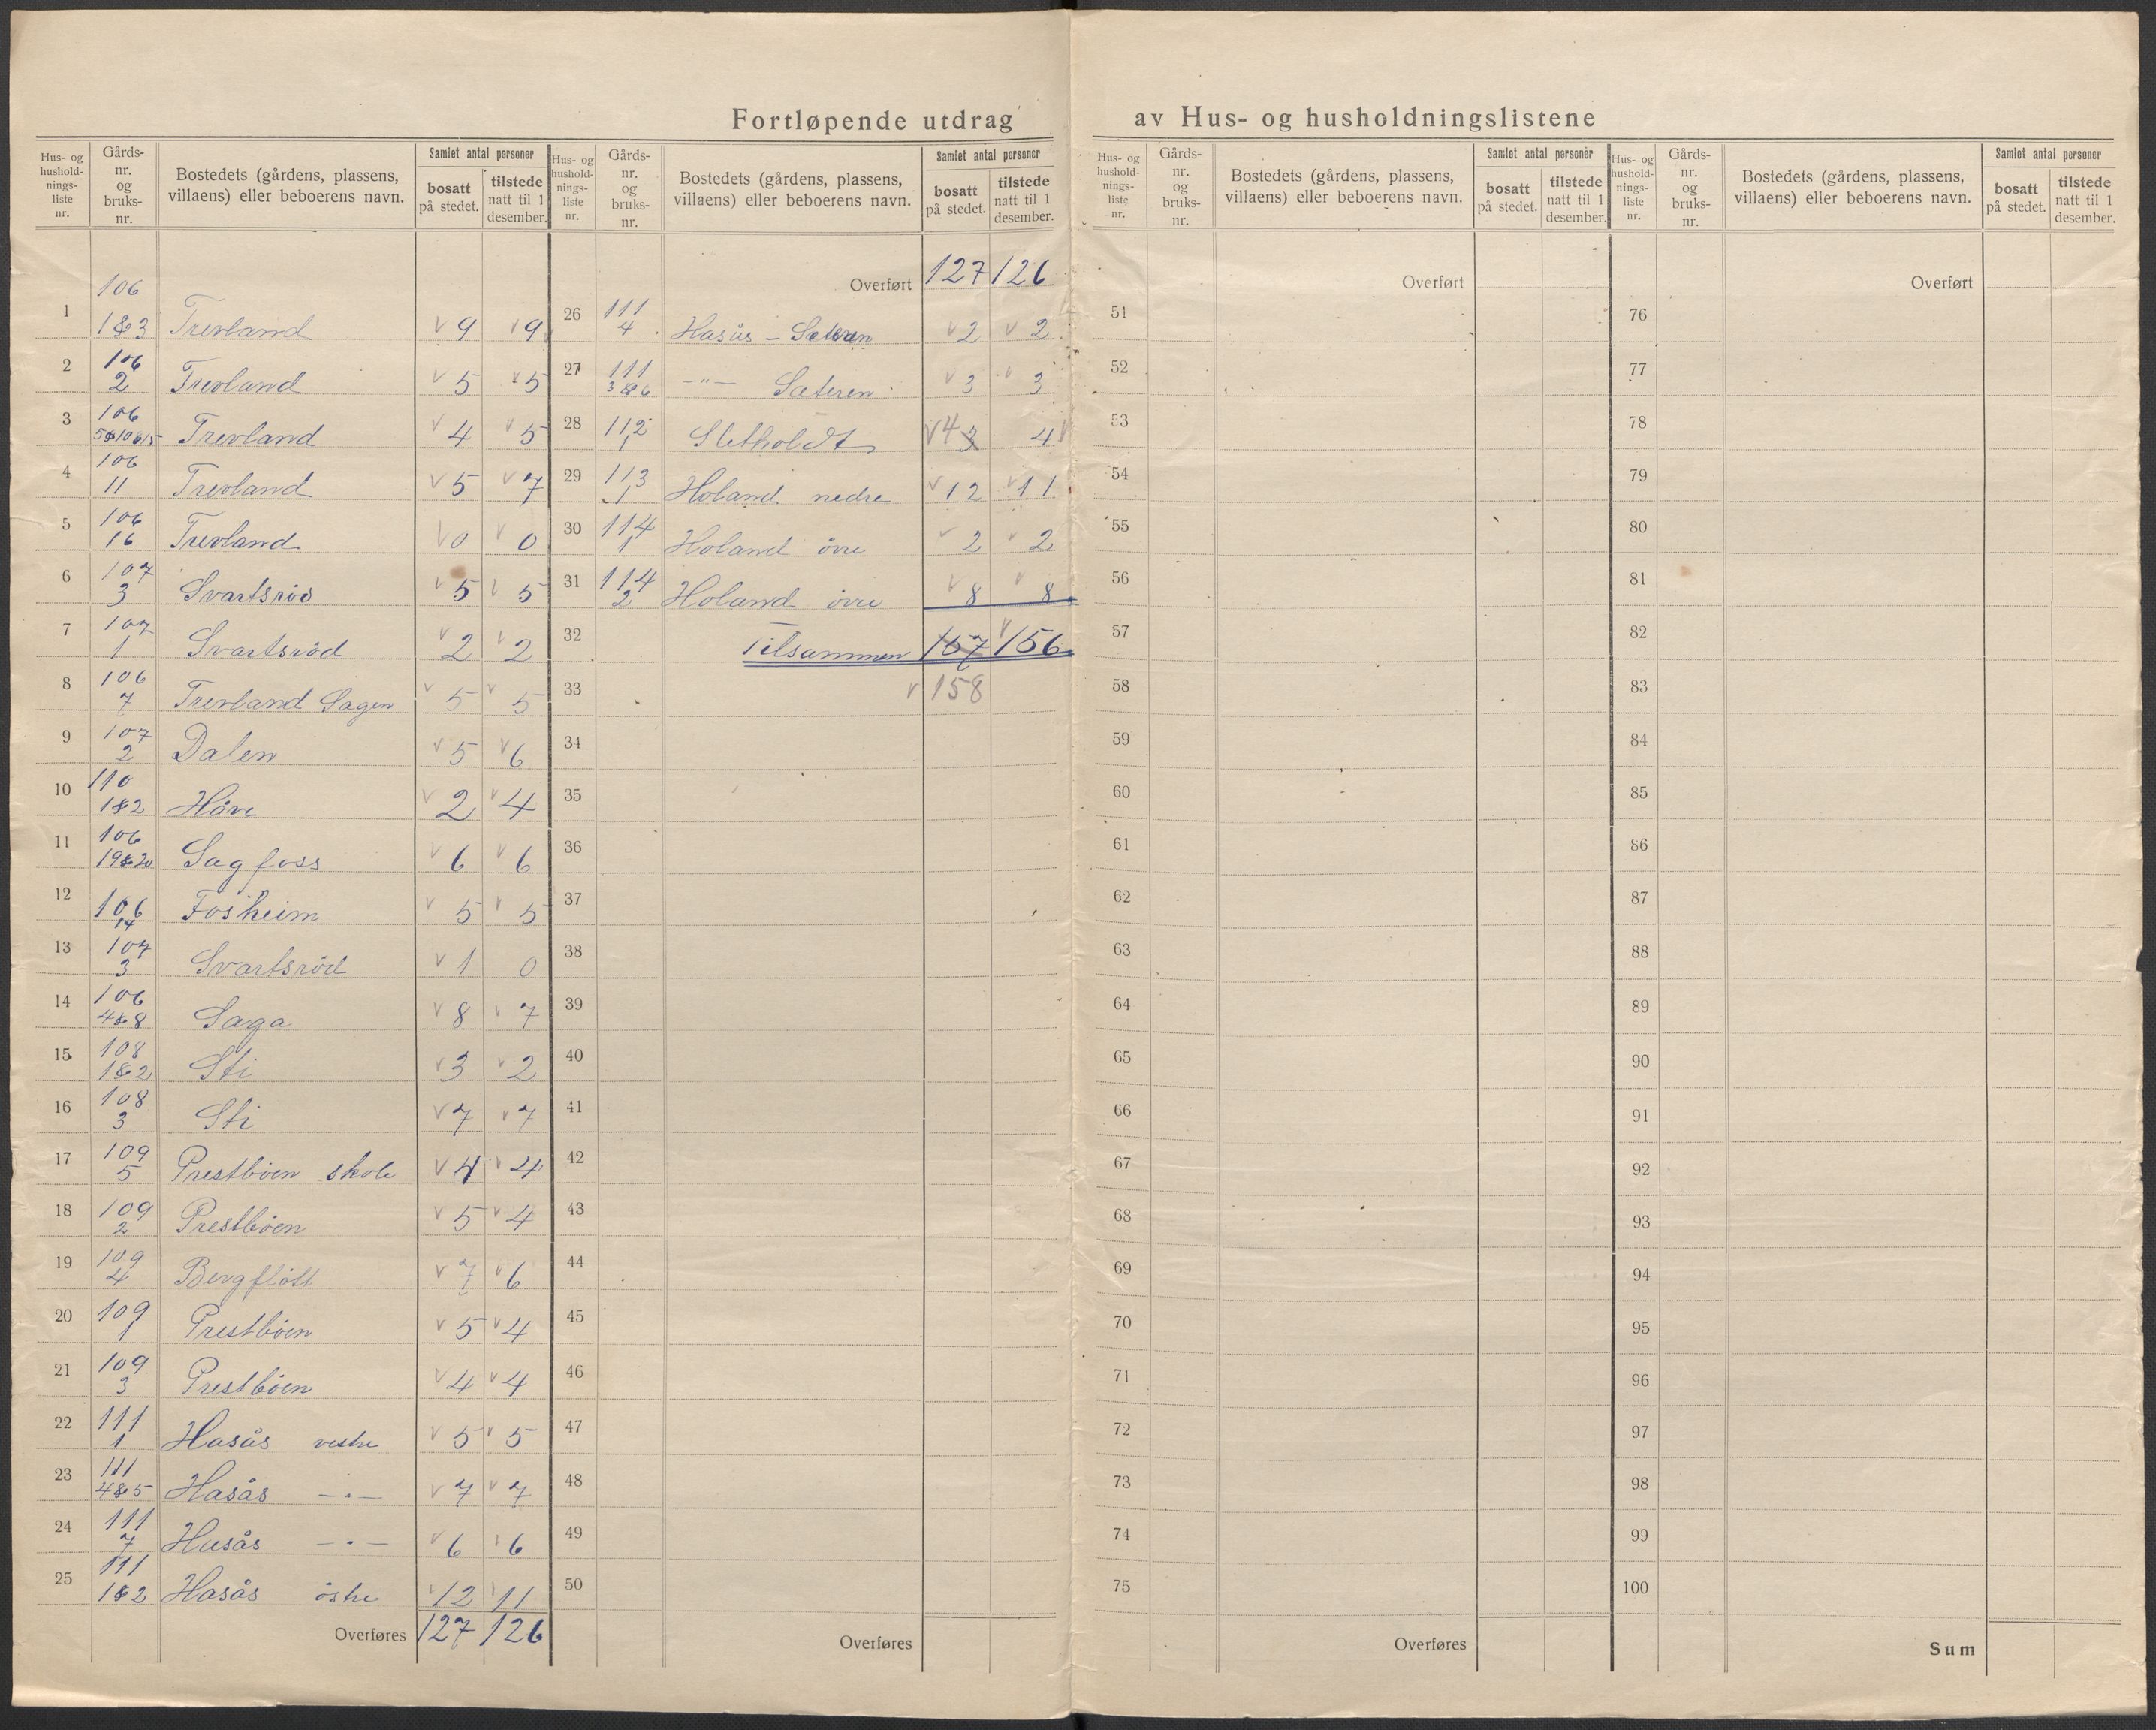 Fortløpende utdrag av Hus- og husholdningslistene
Hus- og hushold- nings- liste nr. | Gårds- nr. og bruks- nr. | Bostedets (gårdens, plassens, villaens) eller beboerens navn. | Samlet antal personer | bosatt på stedet. | tilstede natt til 1 desember.
1 | 106 1&3 | Trevland | v 9 | v 9
2 | 106 2 | Trevland | v 5 | v 5
3 | 106 5&10&15 | Trevland | v 4 | v 5
4 | 106 11 | Trevland | v 5 | v 7
5 | 106 16 | Trevland | v 0 | v 0
6 | 107 3 | Svartsröd | v 5 | v 5
7 | 107 1 | Svartsröd | v 2 | v 2
8 | 106 7 | Trevland Sagen | v 5 | v 5
9 | 107 2 | Dalen | v 5 | v 6
10 | 110 1&2 | Håve | v 2 | v 4
11 | 106 19&20 | Sagfoss | v 6 | v 6
12 | 106 14 | Fosheim | v 5 | v 5
13 | 107 3 | Svartsröd | v 1 | 0
14 | 106 4&8 | Saga | v 8 | v 7
15 | 108 1&2 | Sti | v 3 | v 2
16 | 108 3 | Sti | v 7 | v 7
17 | 109 5 | Prestböen skole | v 4 | v 4
18 | 109 2 | Prestböen | v 5 | v 4
19 | 109 4 | Bergflött | v 7 | v 6
20 | 109 1 | Prestböen | v 5 | v 4
21 | 109 3 | Prestböen | v 4 | v 4
22 | 111 1 | Hasås vestre | v 5 | v 5
23 | 111 4&5 | Hasås -"- | v 7 | v 7
24 | 111 7 | Hasås -"- | v 6 | v 6
25 | 111 1&2 | Hasås östre | v 12 | v 11
Overføres | 127 | 126
Hus- og hushold- nings- liste nr. | Gårds- nr. og bruks- nr. | Bostedets (gårdens, plassens, villaens) eller beboerens navn. | Samlet antal personer | bosatt på stedet. | tilstede natt til 1 desember.
Overført | 127 | 126
26 | 111 4 | Hasås - Sæteren | v 2 | v 2
27 | 111 3&6 | -"- Sæteren | v 3 | v 3
28 | 112 1 | Sletholdt | v 4 3 | 4 v
29 | 113 1 | Holand nedre | v 12 | v 11
30 | 114 1 | Holand övre | v 2 | v 2
31 | 114 2 | Holand övre | v 8 | v 8
32 | Tilsammen | 157 | v 156
33 | v 158
34
35
36
37
38
39
40
41
42
43
44
45
46
47
48
49
50
Overføres
Hus- og hushold- nings- liste nr. | Gårds- nr. og bruks- nr. | Bostedets (gårdens, plassens, villaens) eller beboerens navn. | Samlet antal personer | bosatt på stedet. | tilstede natt til 1 desember.
Overført
51
52
53
54
55
56
57
58
59
60
61
62
63
64
65
66
67
68
69
70
71
72
73
74
75
Overføres
Hus- og hushold- nings- liste nr. | Gårds- nr. og bruks- nr. | Bostedets (gårdens, plassens, villaens) eller beboerens navn. | Samlet antal personer | bosatt på stedet. | tilstede natt til 1 desember.
Overført
76
77
78
79
80
81
82
83
84
85
86
87
88
89
90
91
92
93
94
95
96
97
98
99
100
Sum